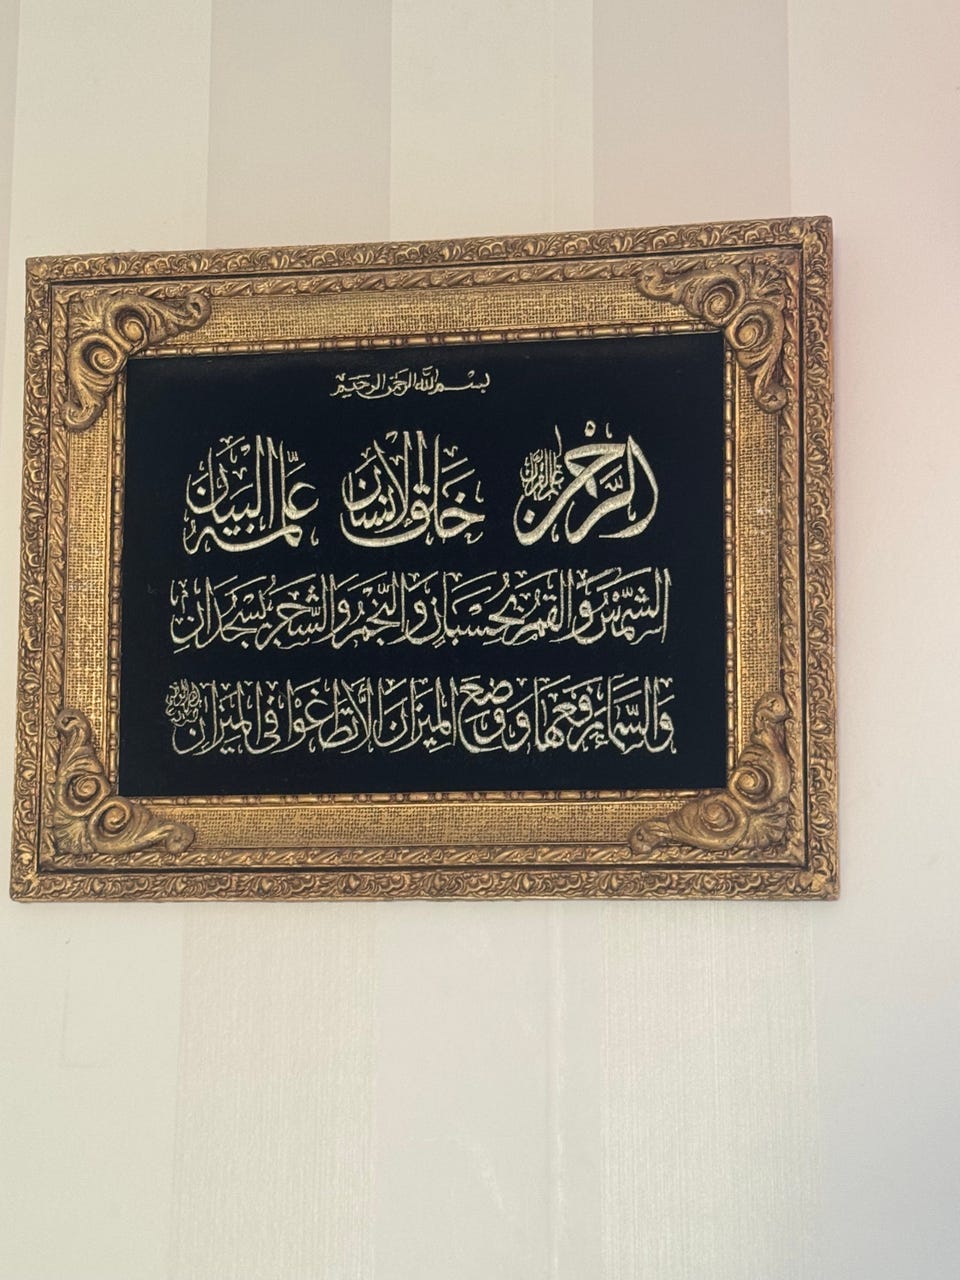 بسم الله الرحمن الرحيم
الرَّحْمٰن علم القرآن خَلَقَ الْإِنْسَانَ عَلَّمَهُ الْبَيَانَ
الشَّمْسُ وَالْقَمَرُ بِحُسْبَانٍ وَالنَّجْمُ وَالشَّجَرُ يَسْجُدَانِ
وَالسَّمَاءَ رَفَعَهَا وَوَضَعَ الْمِيزَانَ أَلَّا تَطْغَوْا فِي الْمِيزَانِ